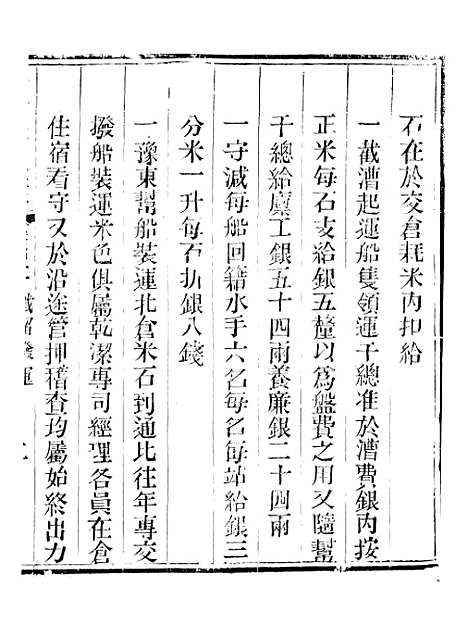 石在於交倉耗米內扣給
一截漕起運船隻領運千總准於漕費銀內按
正米每石支給銀五釐以為盤費之用又隨幫
千總給廩工銀五十四兩養廉銀二十四兩
一守減每船回籍水手六名每名每站給銀三
分米一升每石折銀八錢
一豫東幫船裝運北倉米石到通比往年專交
撥船裝運米色俱屬乾潔專司經理各員在倉
住宿看守又於沿途管押稽查均屬始終出力
截留撥運